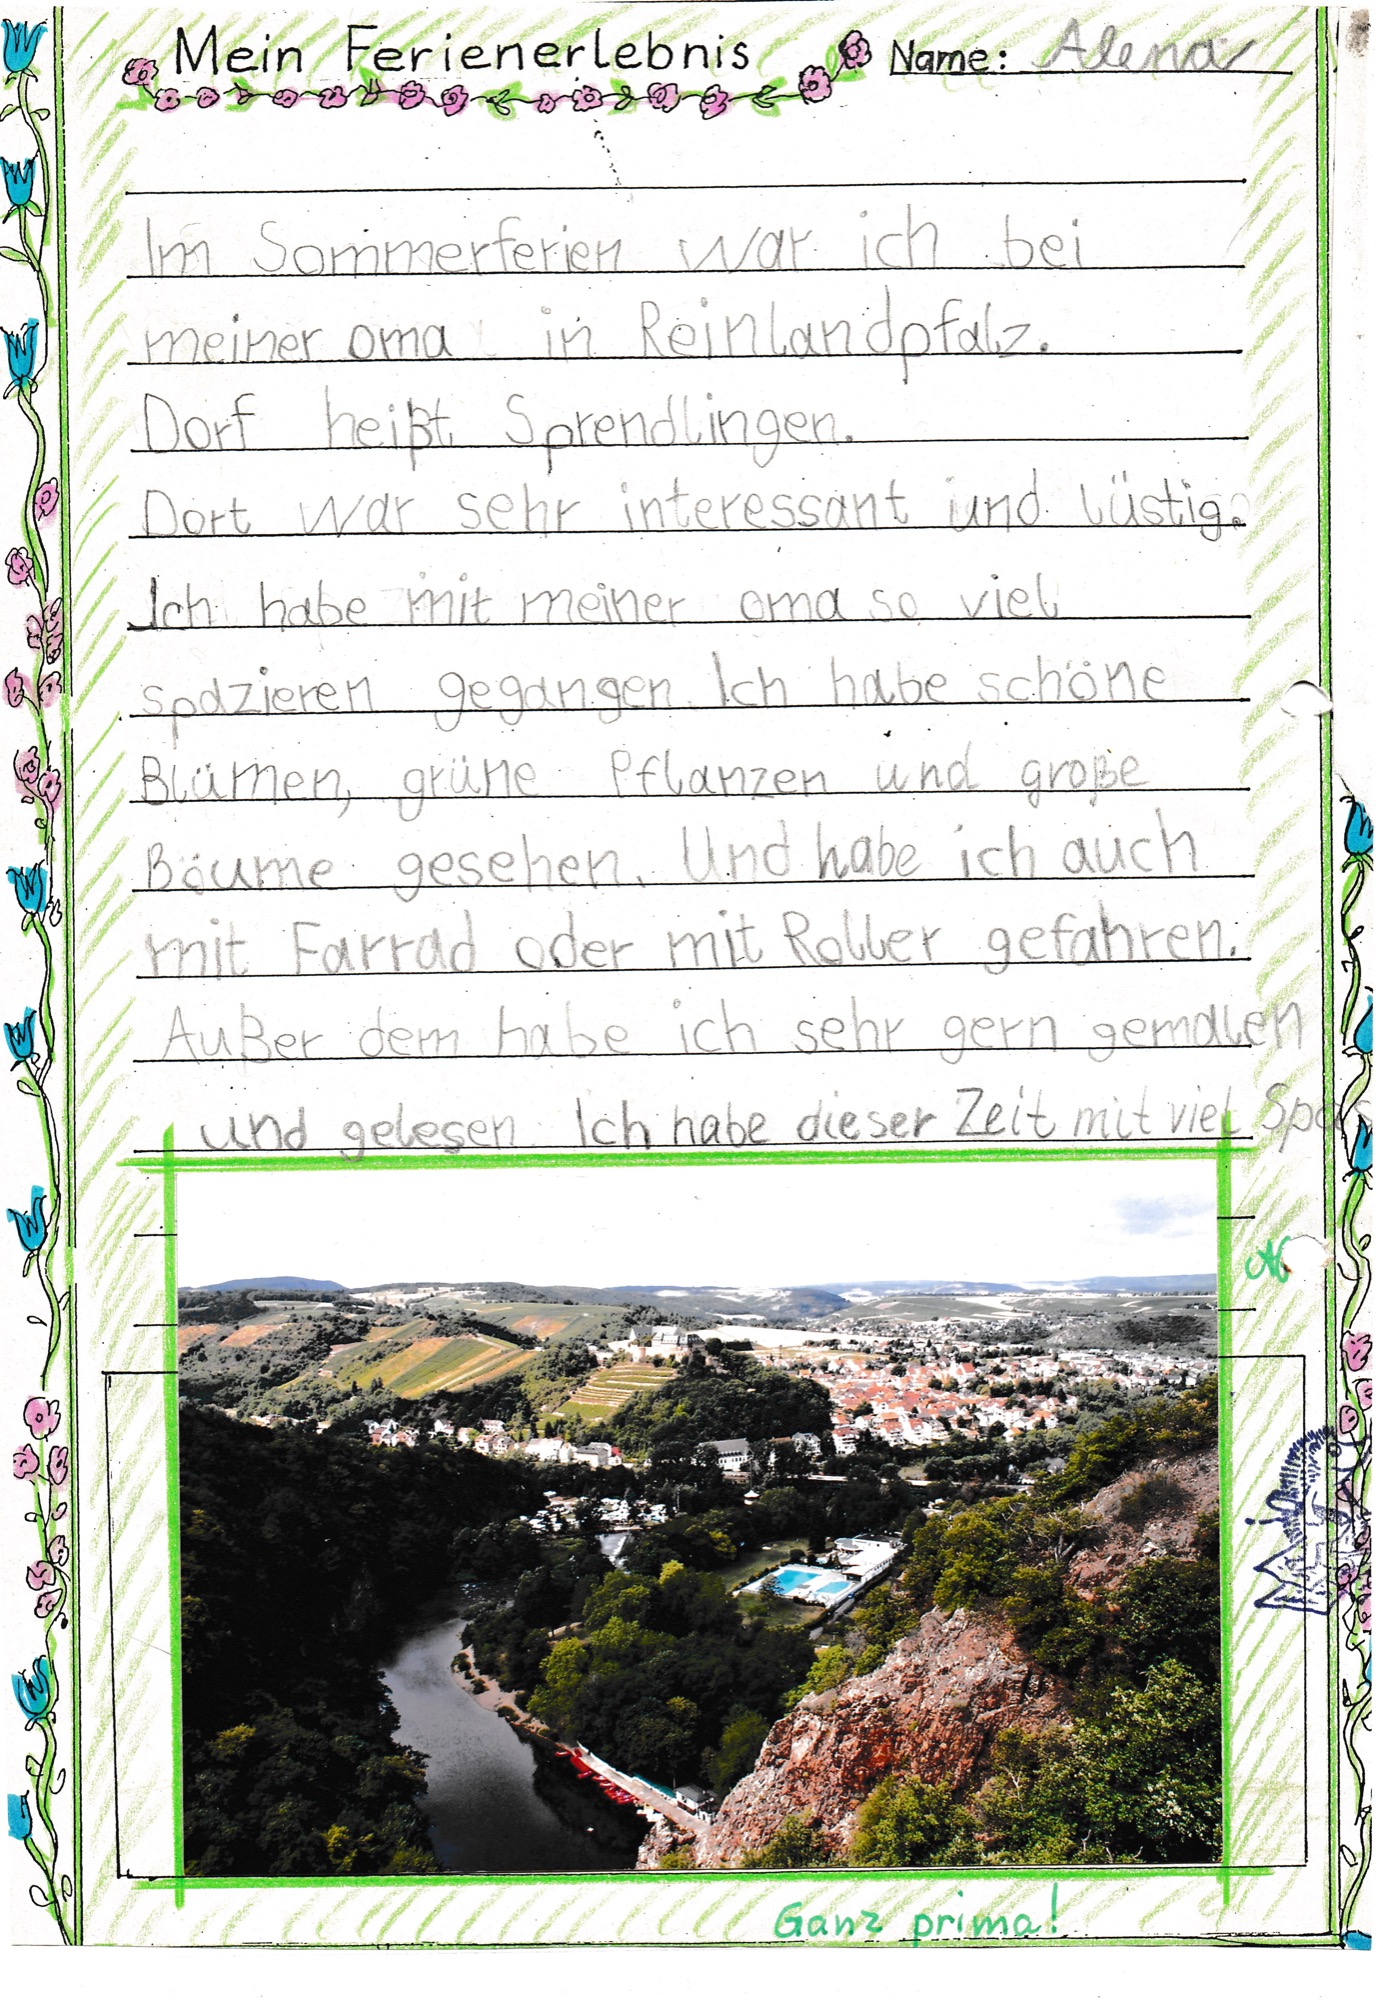 Mein Ferienerlebnis Name: Alena
Im Sommerferien war ich bei
meiner oma in Reinlandpfalz.
Dorf heißt Sprendlingen.
Dort war sehr interessant und lüstig.
Ich habe mit meiner oma so viel
spazieren gegangen. Ich habe schöne
Blümen, grüne Pflanzen und große
Bäume gesehen. Und habe ich auch
mit Farrad oder mit Roller gefahren.
Außer dem habe ich sehr gern gemalen
und gelesen. Ich habe dieser Zeit mit viel
Ganz prima!